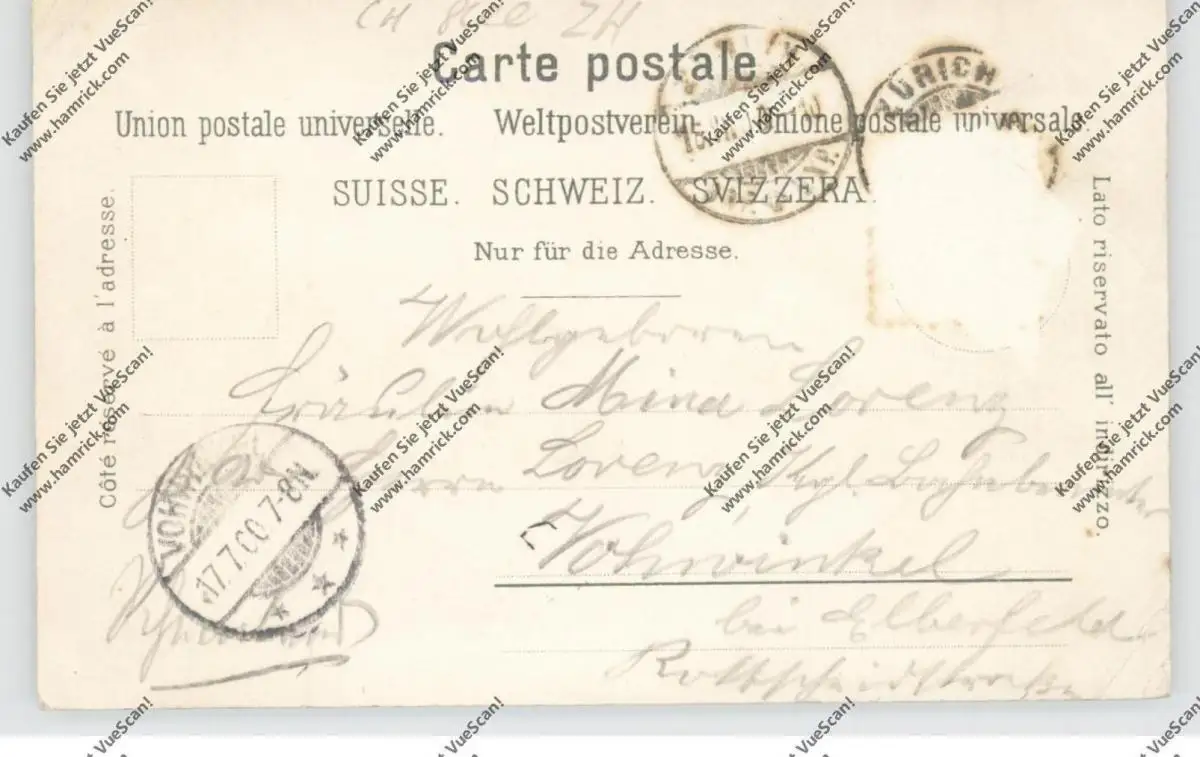 CH 8 ZH
Carte postale
Union postale universelle. Weltpostverein. Unione postale universale.
SUISSE. SCHWEIZ. SVIZZERA.
Nur für die Adresse.
Côté réservé à l'adresse.
Lato riservato all' indirizzo.
ZÜRICH
VOHW
17.7.00.7-8N.
Wohlgeboren
Fräulein Mina Lorenz
Herrn Lorenz, Kgl.
Vohwinkel
bei Elberfeld
Rottscheidstraße
Rheinland
Kaufen Sie jetzt VueScan!
www.hamrick.com